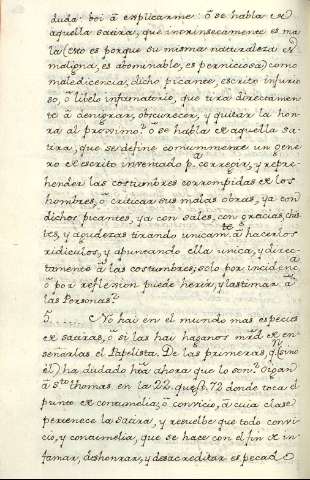 duda: boi â explicarme: ô se habla de
aquella satira, que intrinsecamente es ma
la (esto es porque su misma naturaleza es
maligna, es abominable, es perniciosa) como
maledicencia, dicho picante, escrito infurio
so, ô libelo infamatorio, que tira directamen
te â denigrar, obscurecer, y quitar la hon
ra al proximo? ô se habla de aquella sa
tira, que se define comunmente un gene
ro de escrito inventado p.ª corregir, y repre
hender las costumbres corrompidas de los
hombres, ô criticar sus malas obras, ya con
dichos picantes, ya con sales, con gracias, chis
tes, y agudezas tirando unicam.te â hacerlos
ridiculos, y apuntando ella unica, y direc
tamente â las costumbres, solo por incidencia
ô por reflexion puede herir, y lastimar â
las Personas?
5...... No hai en el mundo mas especies
de satiras, ô si las hai haganos mrd de en
señarlas el Papelista. De las primeras, q.n (sino
el) ha dudado hta ahora que lo son? Oigan
â S.to Thomas en la 22. quest. 72 donde toca el
punto de contumelia, ô convicio, â cuia clase
pertenece la satira, y resuelbe que todo convi
cio, y contumelia, que se hace con el fin de in
famar, deshonrar, y desacreditar es pecado